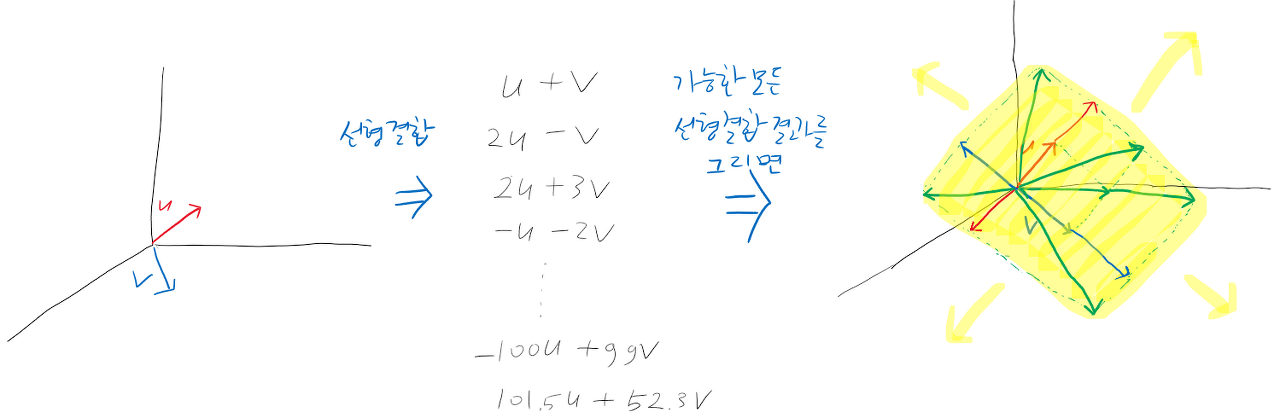 u
v
선형결합
u + v
2u - v
2u + 3v
-u - 2v
-100u + 99v
101.5u + 52.3v
가능한 모든
선형결합 결과를
그리면
u
v